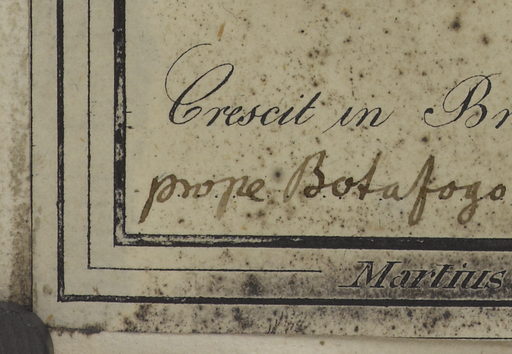 Crescit in Br
prope Botafogo
Martius